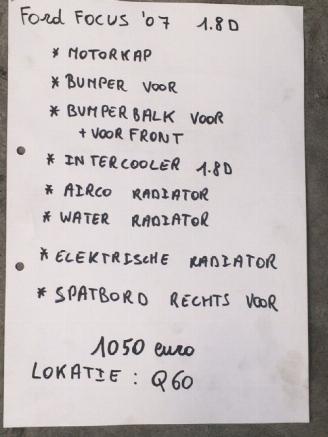 Ford FOCUS '07 1.8D
* MOTORKAP
* BUMPER VOOR
* BUMPERBALK VOOR
+ VOOR FRONT
* INTERCOOLER 1.8D
* AIRCO RADIATOR
* WATER RADIATOR
* ELEKTRISCHE RADIATOR
* SPATBORD RECHTS VOOR
1050 euro
LOKATIE : Q60